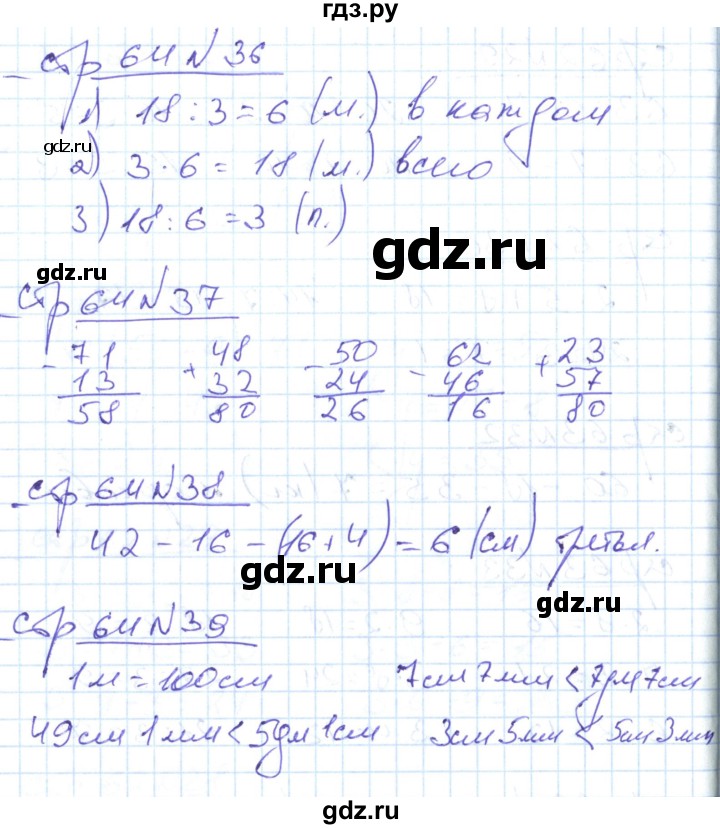 гдз.ру
стр 64 № 36
1) 18 : 3 = 6 (м.) в каждом
gdz.ru
2) 3 · 6 = 18 (м.) всего
3) 18 : 6 = 3 (п.)
gdz.ru
gdz.ru
стр 64 № 37
- 71 + 48 - 50 - 62 + 23
13 32 24 46 57
58 80 26 16 80
стр 64 № 38
42 - 16 - (16 + 4) = 6 (см) третья.
gdz.ru
gdz.ru
стр 64 № 39
1 м = 100 см 7 см 7 мм < 7 дм 7 см
49 см 1 мм < 5 дм 1 см 3 см 5 мм < 5 см 3 мм
gdz.ru